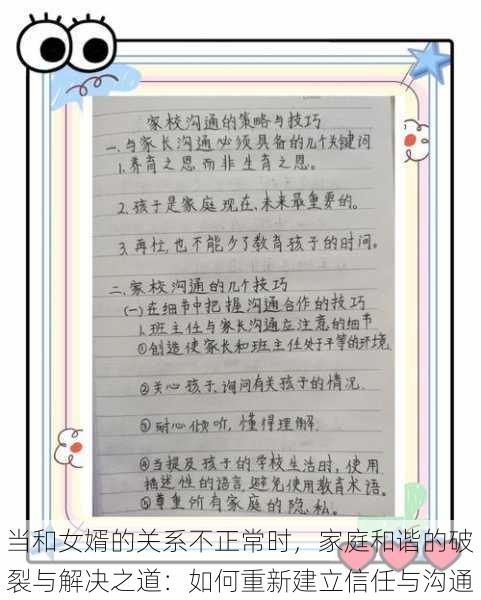 家校沟通的策略与技巧
一、与家长沟通必须具备的几个关键词
1.养育之恩而非生育之恩。
2.孩子是家庭现在、未来最重要的。
3.再忙,也不能少了教育孩子的时间。
二、家校沟通的几个技巧
(一)在细节中把握沟通合作的技巧
1.班主任与家长沟通应注意的细节
①创造使家长和班主任处于平等的环境
②关心孩子、询问有关孩子的情况.
③耐心倾听,懂得理解.
④当提及孩子的学校生活时,使用
描述性的语言,避免使用教育术语。
⑤尊重所有家庭的隐私。
当和女婿的关系不正常时，家庭和谐的破
裂与解决之道：如何重新建立信任与沟通